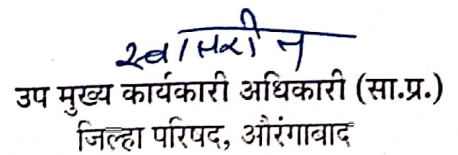 स्वाक्षरीत
उप मुख्य कार्यकारी अधिकारी (सा.प्र.)
जिल्हा परिषद, औरंगाबाद